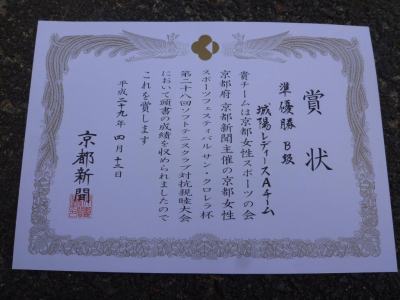 賞状
準優勝 B級
城陽レディースAチーム
貴チームは京都女性スポーツの会
京都府 京都新聞主催の京都女性
スポーツフェスティバル サン・クロレラ杯
第二十八回ソフトテニスクラブ対抗親睦大会
において頭書の成績を収められましたので
これを賞します
平成二十九年 四月十三日
京都新聞